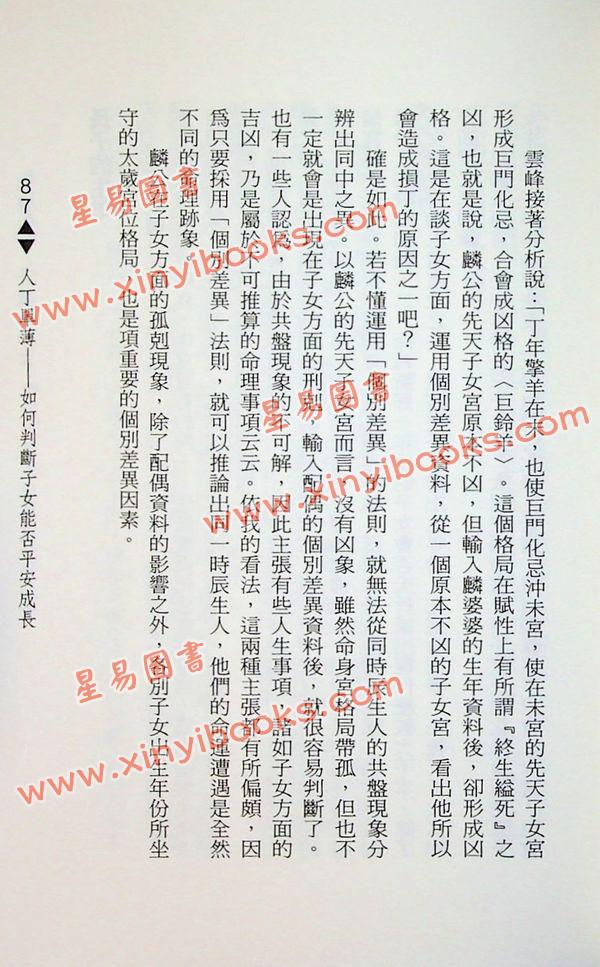 雲峰接著分析說：「丁年擎羊在未，也使巨門化忌沖未宮，使在未宮的先天子女宮
形成巨門化忌，合會成凶格的〈巨鈴羊〉。這個格局在賦性上有所謂『終生縊死』之
凶，也就是說，麟公的先天子女宮原本不凶，但輸入麟婆婆的生年資料後，卻形成凶
格。這是在談子女方面，運用個別差異資料，從一個原本不凶的子女宮，看出他所以
會造成損丁的原因之一吧？」
確是如此。若不懂運用「個別差異」的法則，就無法從同時辰生人的共盤現象分
辨出同中之異。以麟公的先天子女宮而言，沒有凶象，雖然命身宮格局帶孤，但也不
一定就會是出現在子女方面的刑剋，輸入配偶的個別差異資料後，就很容易判斷了。
也有一些人認為，由於共盤現象的不可解，因此主張有些人生事項，諸如子女方面的
吉凶，乃是屬於不可推算的命理事項云云。依我的看法，這兩種主張都有所偏頗，因
爲只要採用「個別差異」法則，就可以推論出同一時辰生人，他們的命運遭遇是全然
不同的命理跡象。
麟公在子女方面的孤剋現象，除了配偶資料的影響之外，各別子女出生年份所坐
守的太歲宮位格局，也是項重要的個別差異因素。
87▲▼人丁單薄──如何判斷子女能否平安成長
星易圖書
www.xinyibooks.com
星易圖書
www.xinyibooks.com
星易圖書
www.xinyibooks.com